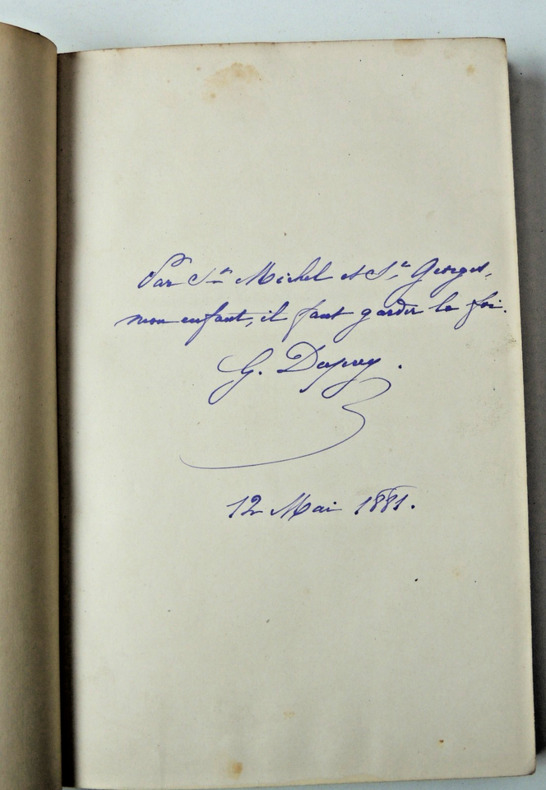 Par St Michel et St Georges,
mon enfant, il faut garder la foi.
G. Dupuy.
12 Mai 1881.